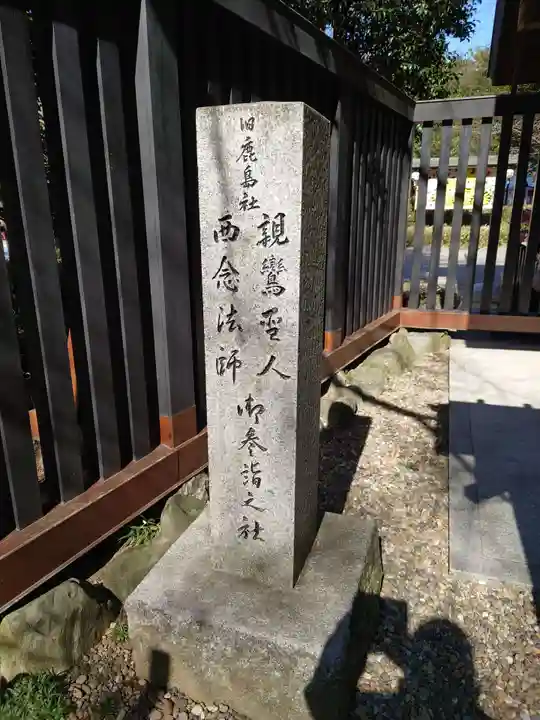 旧鹿島社
親鸞聖人
西念法師
御参詣之社